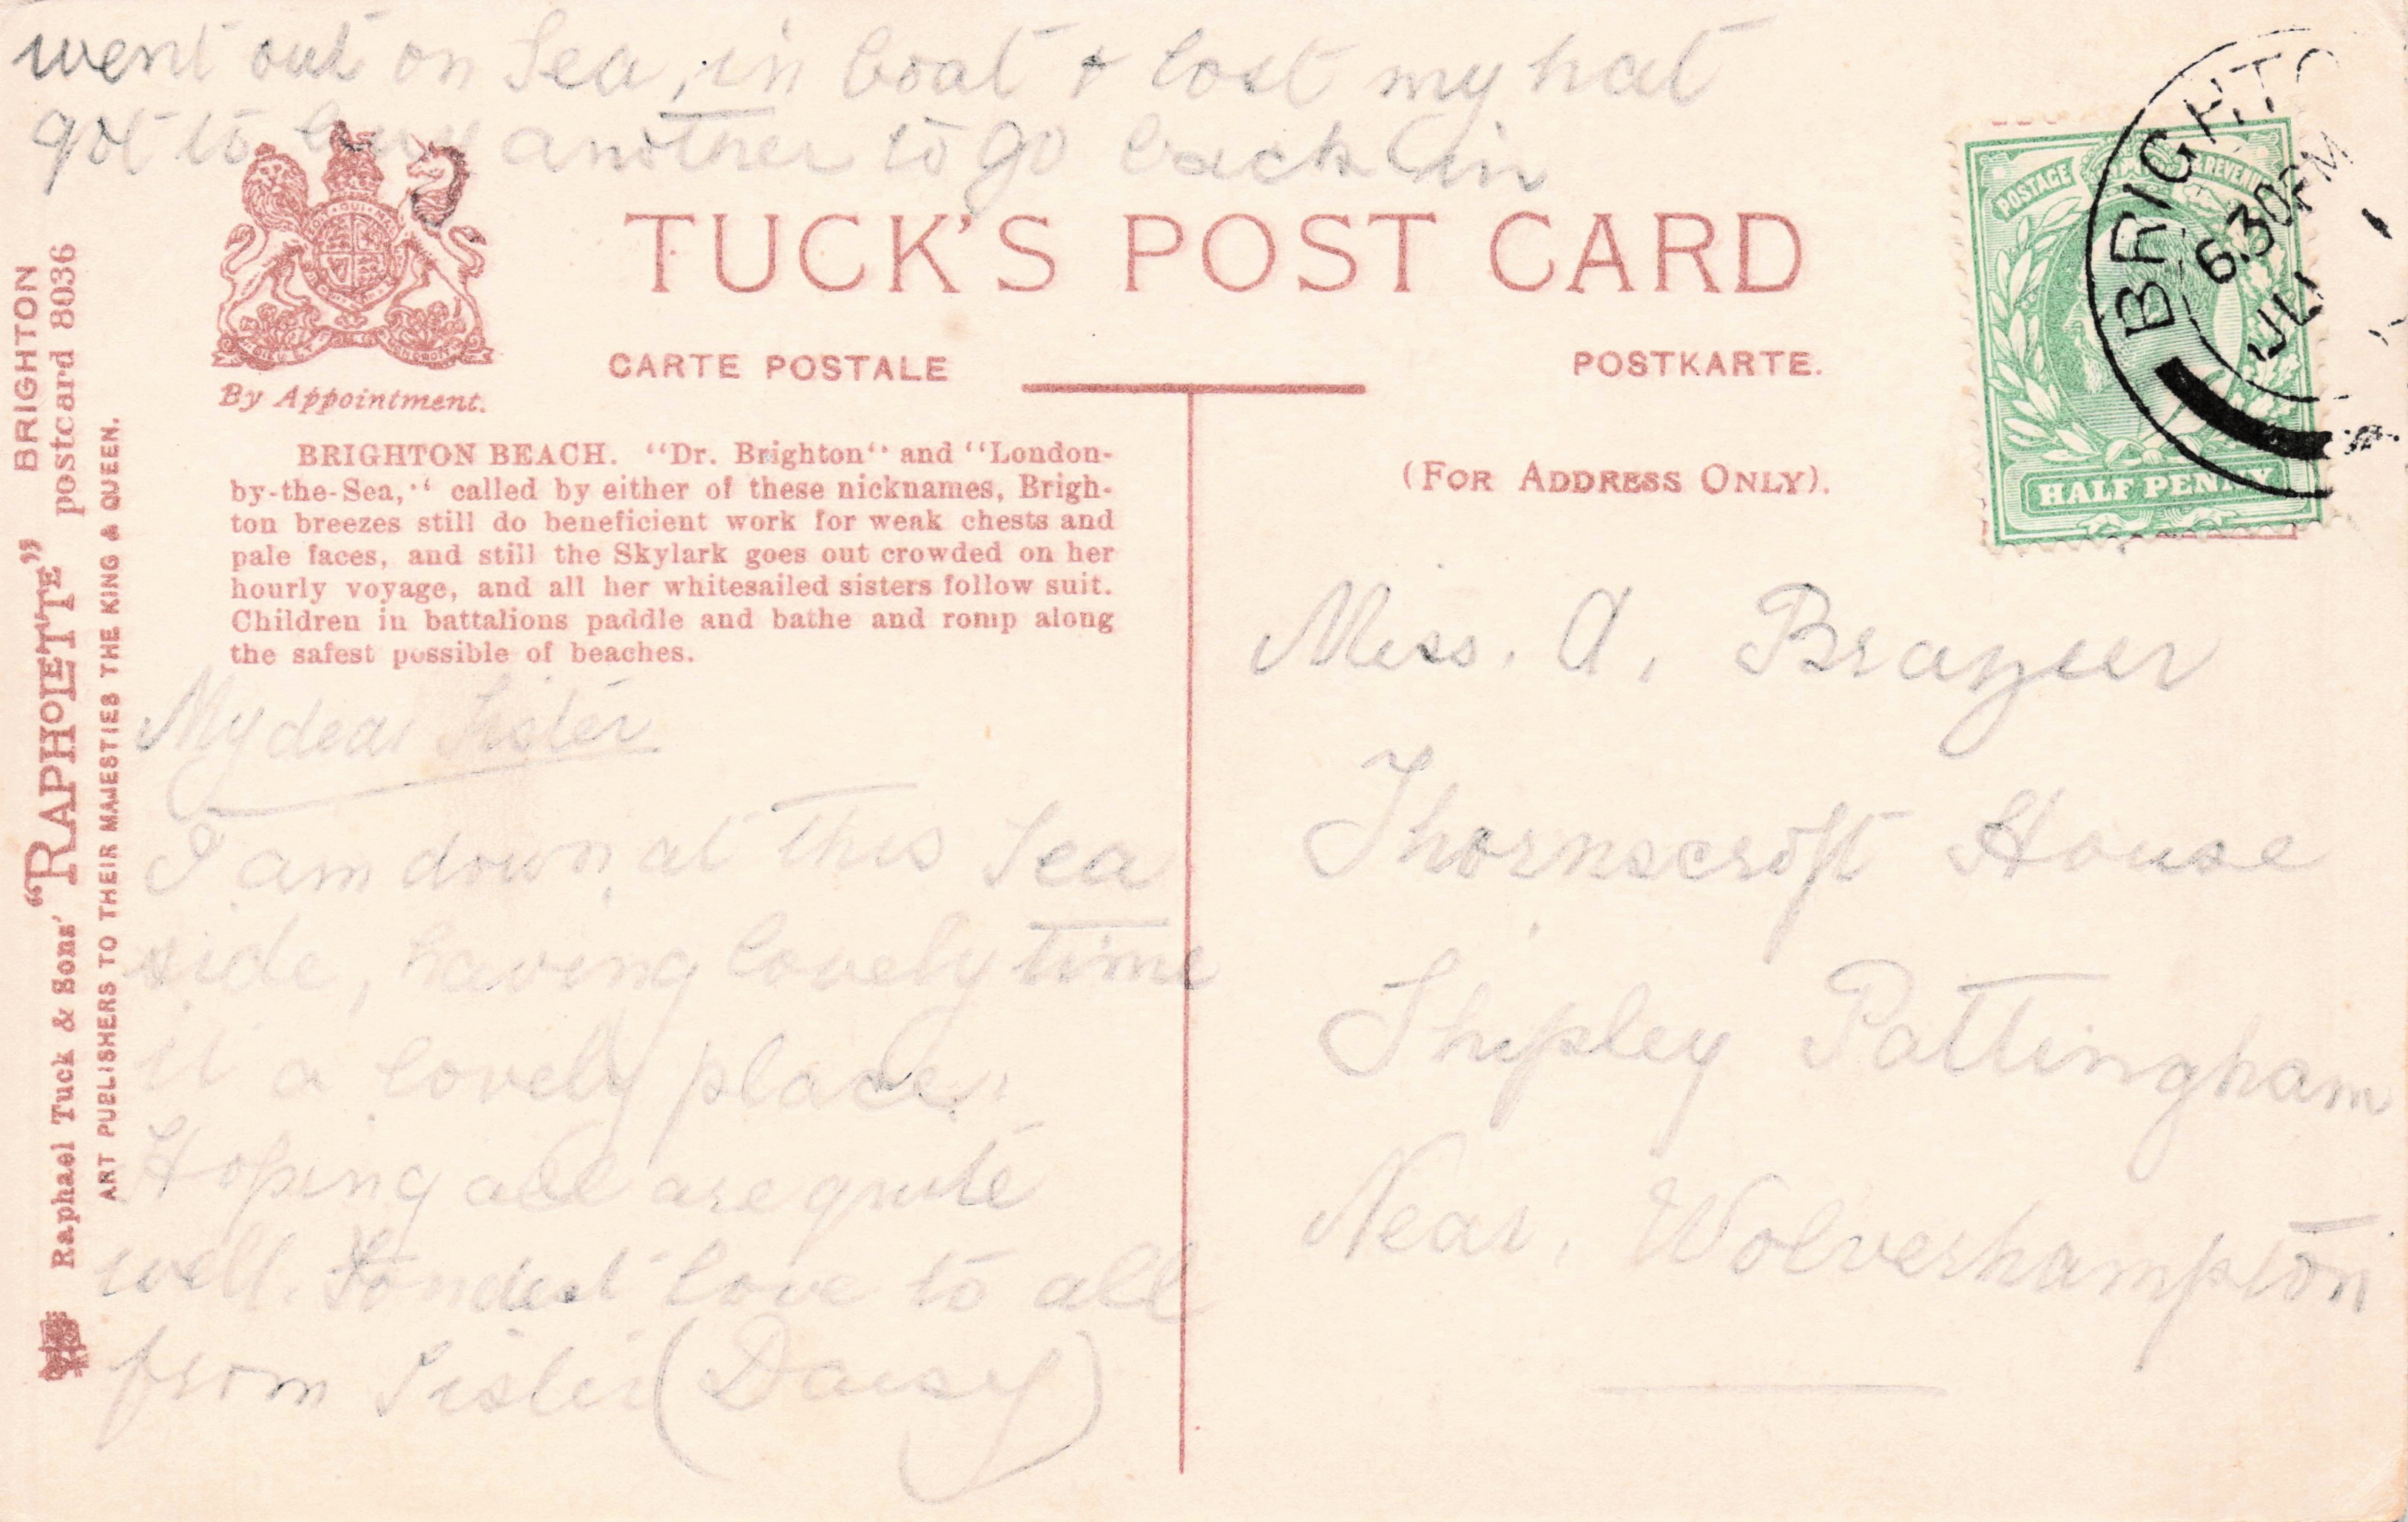 went out on Sea, in boat & lost my hat
got to buy another to go back in
TUCK'S POST CARD
CARTE POSTALE
POSTKARTE.
By Appointment.
(FOR ADDRESS ONLY).
BRIGHTON
6.30PM
JU
POSTAGE
REVENUE
HALF PENNY
BRIGHTON BEACH. "Dr. Brighton" and "London-
by-the-Sea," called by either of these nicknames, Brigh-
ton breezes still do beneficient work for weak chests and
pale faces, and still the Skylark goes out crowded on her
hourly voyage, and all her whitesailed sisters follow suit.
Children in battalions paddle and bathe and romp along
the safest possible of beaches.
My dear Sister
I am down at this Sea
side, having lovely time
it a lovely place.
Hoping all are quite
well. Fondest love to all
from Sister (Daisy)
Miss. A. Brazier
Thornscroft House
Shipley Pattingham
Near, Wolverhampton
Raphael Tuck & Sons' "RAPHOLETTE" BRIGHTON
postcard 8036
ART PUBLISHERS TO THEIR MAJESTIES THE KING & QUEEN.